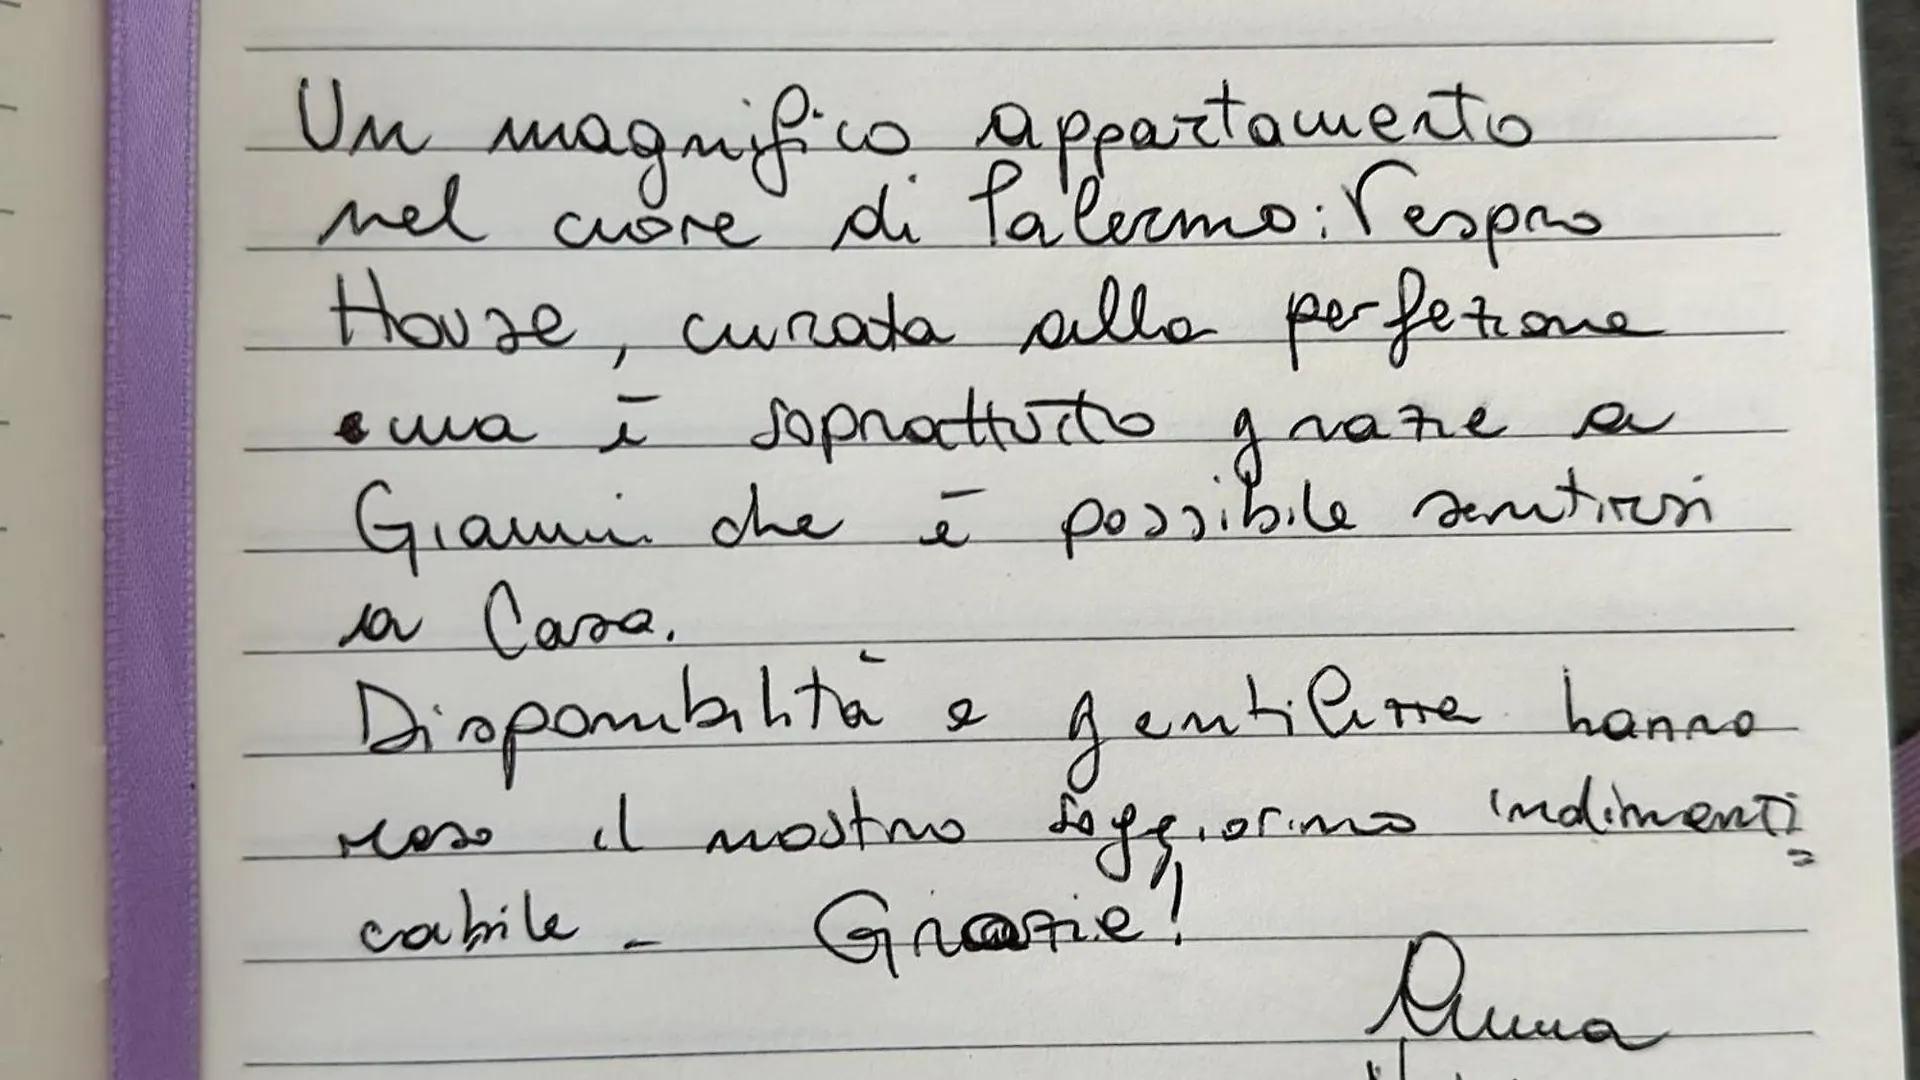 Un magnifico appartamento
nel cuore di Palermo: Vespro
House, curata alla perfezione
ma è soprattutto grazie a
Gianni che è possibile sentirsi
a Casa.
Disponibilità e gentilezza hanno
reso il nostro soggiorno indimenti=
cabile - Grazie!
Anna